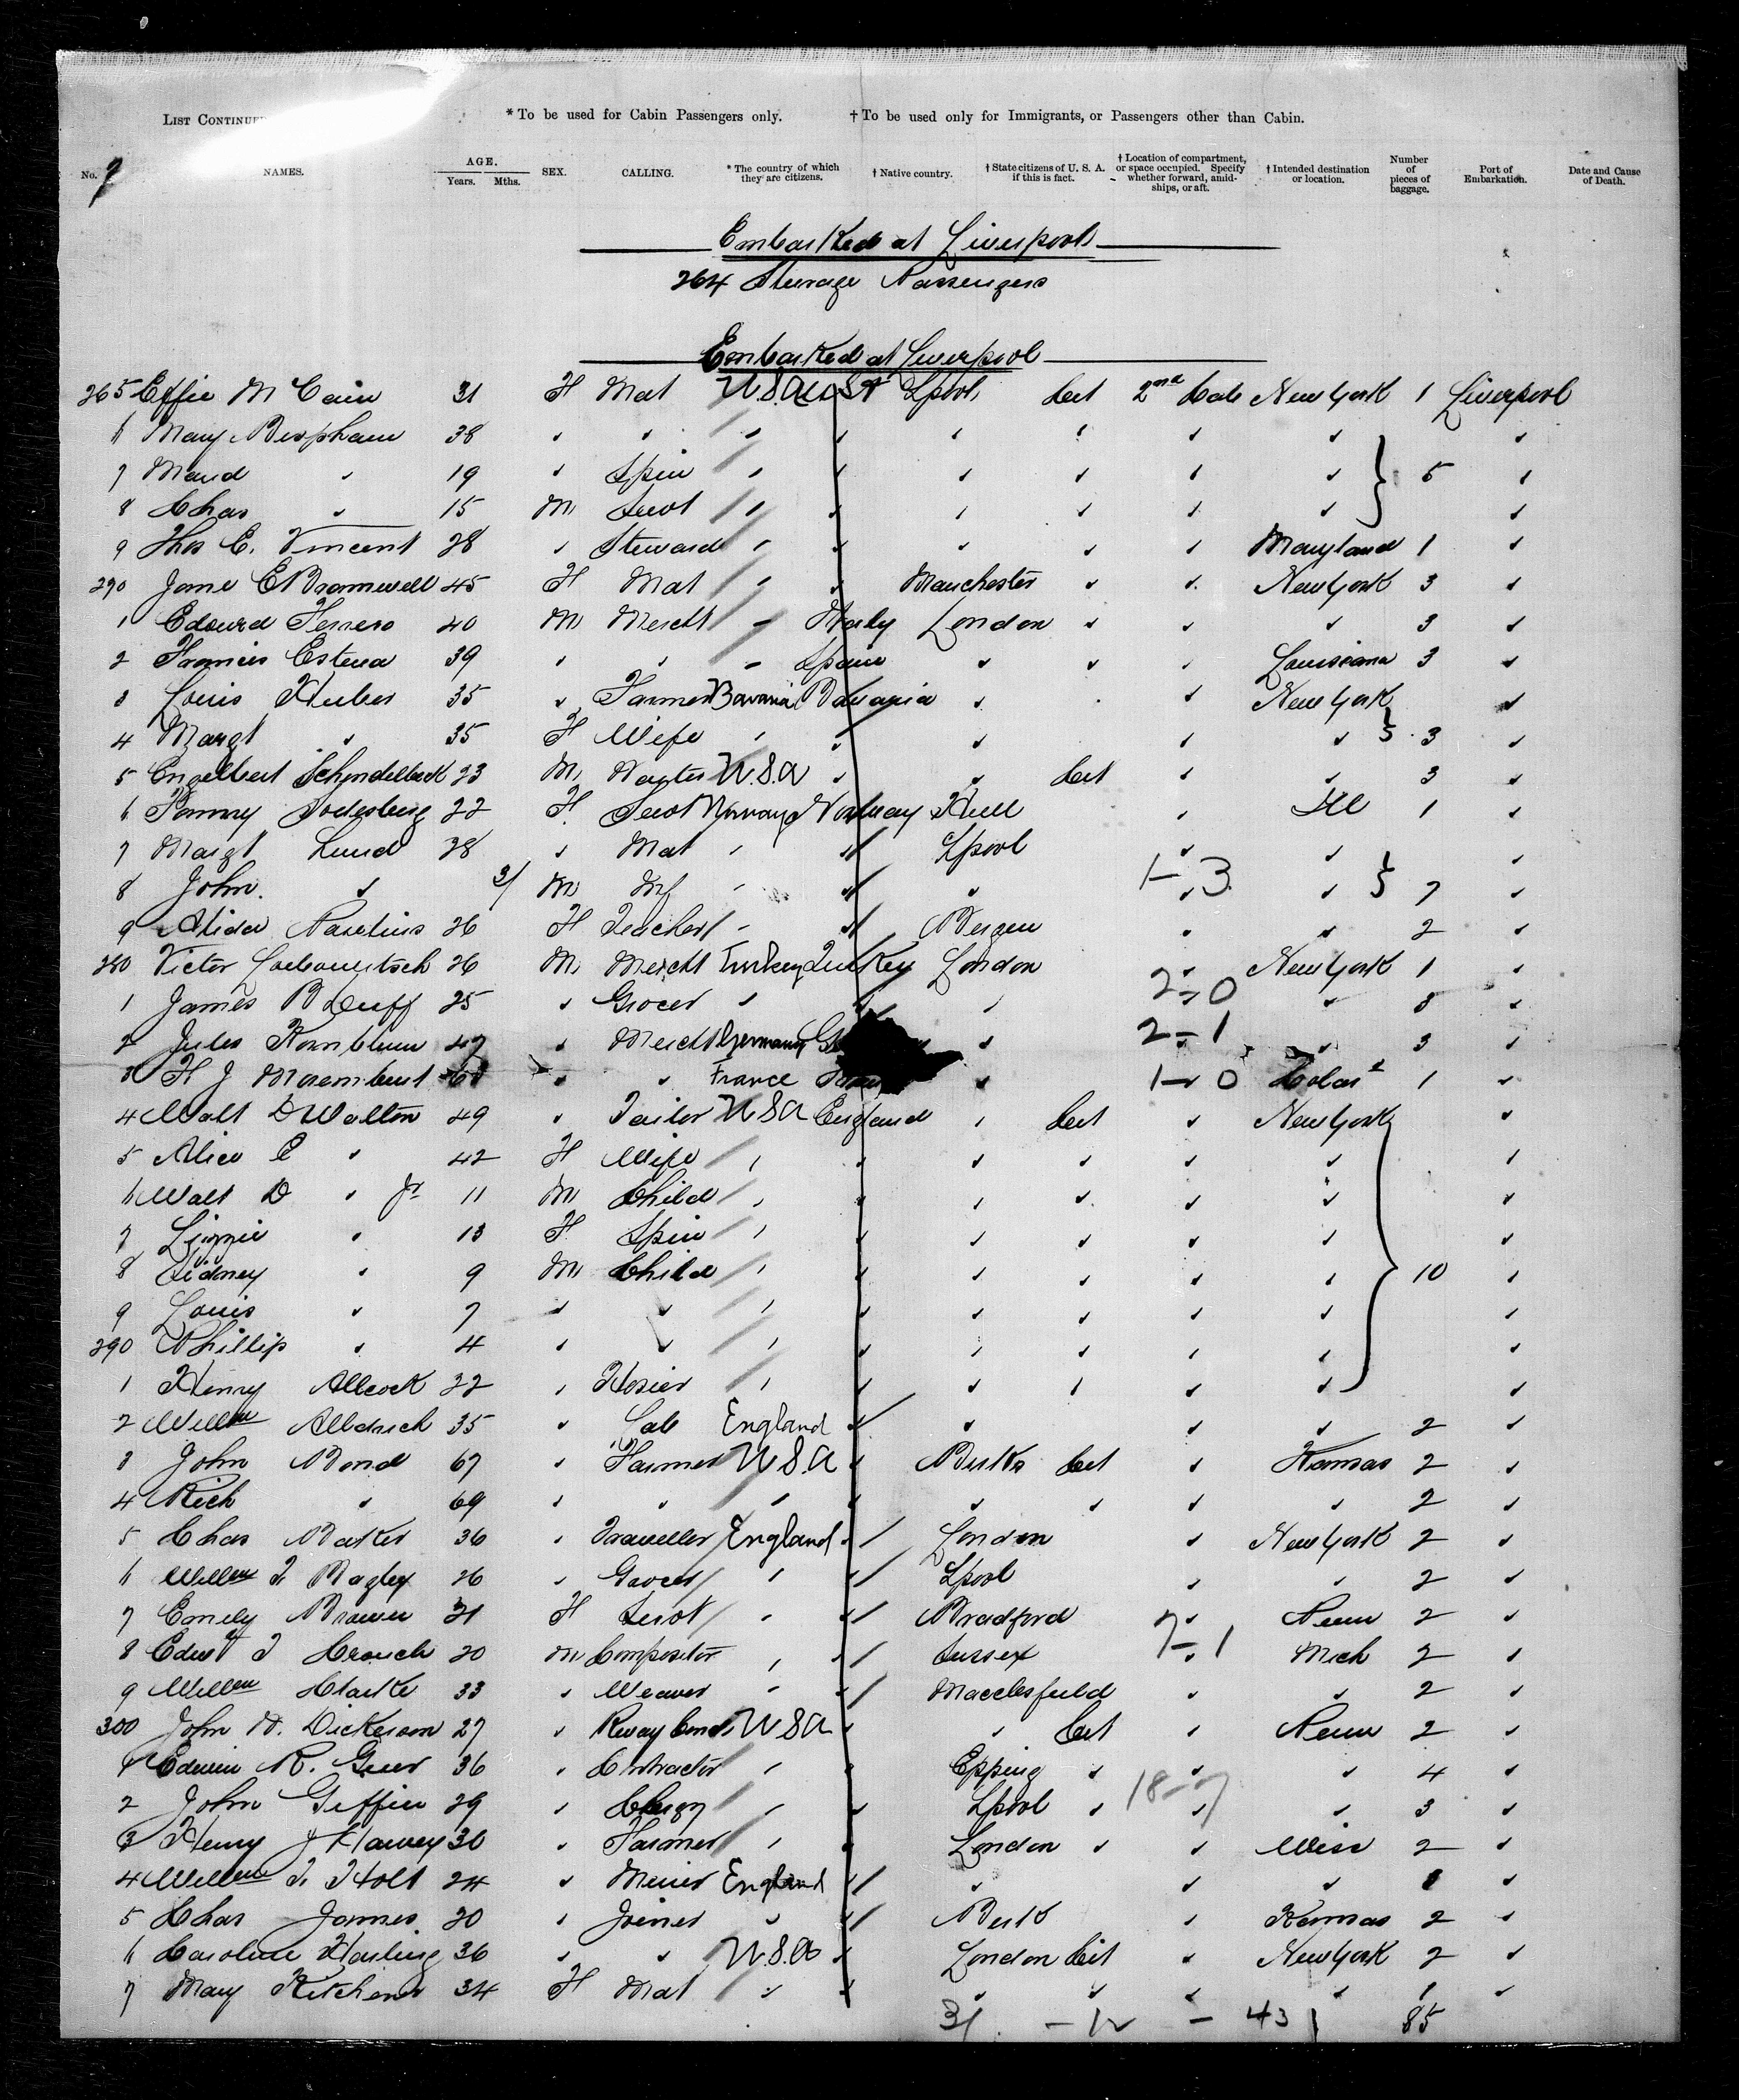 LIST CONTINUED
* To be used for Cabin Passengers only. † To be used only for Immigrants, or Passengers other than Cabin.
No. 7 NAMES. AGE. Years. Mths. SEX. CALLING. * The country of which they are citizens. † Native country. † State citizens of U. S. A. if this is fact. † Location of compartment, or space occupied. Specify whether forward, amid-ships, or aft. † Intended destination or location. Number of pieces of baggage. Port of Embarkation. Date and Cause of Death.
Embarked at Liverpool
264 Steerage Passengers
Embarked at Liverpool
265 Effie McCain 31 F Mat U.S.A. Lpool Cit 2nd Cab New York 1 Liverpool
6 Mary Bispham 38 " " " " " " " " "
7 Maud " 19 " Spin " " " " " " 5 "
8 Chas " 15 M Servt " " " " " " "
9 Thos E. Vincent 28 " Steward " " " " " Maryland 1 "
270 Jane E Bramwell 45 F Mat " " Manchester " " New York 3 "
1 Edourd Ferrero 40 M Mercht " Italy London " " " 3 "
2 Francis Esteva 39 " " " Spain " " " Louisiana 3 "
3 Louis Huber 35 " Farmer Bavaria Bavaria " " New York "
4 Margt " 35 F Wife " " " " " 3 "
5 Engelbert Schendelbeck 23 M U.S.A " " Cit " " 3 "
6 Fanny Soderberg 22 F Servt Norway Norway Hull " Ill 1 "
7 Margt Lund 28 " Mat " " Lpool " " "
8 John " 3/ M Inf " " " 1-3 " 7 "
9 Alida 26 F Teacher " " Bergen " " 2 "
280 Victor 26 M Mercht Turkey Turkey London " New York 1 "
1 James B Duff 25 " Grocer " " " 2-0 " 8 "
2 Jules Kornblum 47 " Mercht Germany " 2-1 " 3 "
3 H J " " France " 1-0 1 "
4 Walt D Walton 49 " Tailor U S A England " Cit " New York "
5 Alice E " 42 F Wife " " " " " " "
6 Walt D " Jr 11 M Child " " " " " " "
7 Lizzie " 13 F Spin " " " " " " "
8 Sidney " 9 M Child " " " " " " 10 "
9 Louis " 7 " " " " " " " " "
290 Phillip " 4 " " " " " " " " "
1 Henry Allcock 22 " Hosier " " " " " " "
2 Willm Alldrich 35 " Lab England " " " " 2 "
3 John Bond 67 " Farmer U S A " Berks Cit " Kansas 2 "
4 Rich " 69 " " " " " " " " 2 "
5 Chas Baker 36 " Traveller England " London " New York 2 "
6 Willm T. Bagley 26 " Grocer " " Lpool " " 2 "
7 Emily Brown 21 F Servt " " Bradford " Penn 2 "
8 Edwd J Crouch 20 M Compositor " " Sussex 7-1 Mich 2 "
9 Willm Clarke 33 " Weaver " " Macclesfield " " 2 "
300 John H. Dickerson 27 " U S A " " Cit " Penn 2 "
1 Edwin R. Greer 36 " Contractor " " Epping " " " 4 "
2 John Giffin 29 " Clergy " " Lpool " 18-7 " 3 "
3 Henry J Harvey 30 " Farmer " " London " " Wisc 2 "
4 Willm T. Holt 24 " Miner England " " " " 1 "
5 Chas James 20 " Joiner " " Berk " Kansas 2 "
6 Caroline Harling 36 " " U.S.A " London Cit " New York 2 "
7 Mary Kitchener 34 F Mat " " " " " " 1 "
31 - 12 - 43 85